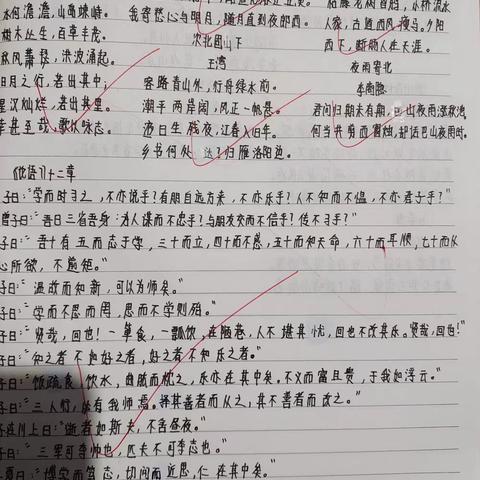 水何澹澹,山岛竦峙。
树木丛生,百草丰茂。
秋风萧瑟,洪波涌起。
日月之行,若出其中;
星汉灿烂,若出其里。
幸甚至哉,歌以咏志。
我寄愁心与明月,随月直到夜郎西。
次北固山下
王湾
客路青山外,行舟绿水前。
潮平两岸阔,风正一帆悬。
海日生残夜,江春入旧年。
乡书何处达?归雁洛阳边。
枯藤老树昏鸦,小桥流水
人家,古道西风瘦马。夕阳
西下,断肠人在天涯。
夜雨寄北
李商隐
君问归期未有期,巴山夜雨涨秋池
何当共剪西窗烛,却话巴山夜雨时。
《论语》十二章
子曰:“学而时习之,不亦说乎?有朋自远方来,不亦乐乎?人不知而不愠,不亦君子乎?”
曾子曰:“吾日三省吾身:为人谋而不忠乎?与朋友交而不信乎?传不习乎?”
子曰:“吾十有五而志于学,三十而立,四十而不惑,五十而知天命,六十而耳顺,七十而从
心所欲,不逾矩。”
子曰:“温故而知新,可以为师矣。”
子曰:“学而不思而罔,思而不学则殆。”
子曰:“贤哉,回也!一箪食,一瓢饮,在陋巷,人不堪其忧,回也不改其乐。贤哉,回也!”
子曰:“知之者不如好之者,好之者不如乐之者。”
子曰:“饭疏食,饮水,曲肱而枕之,乐亦在其中矣。不义而富且贵,于我如浮云。”
子曰:“三人行,必有我师焉。择其善者而从之,其不善者而改之。”
子在川上曰:“逝者如斯夫,不舍昼夜。”
子曰:“三军可夺帅也,匹夫不可夺志也。”
子夏曰:“博学而笃志,切问而近思,仁在其中矣。”